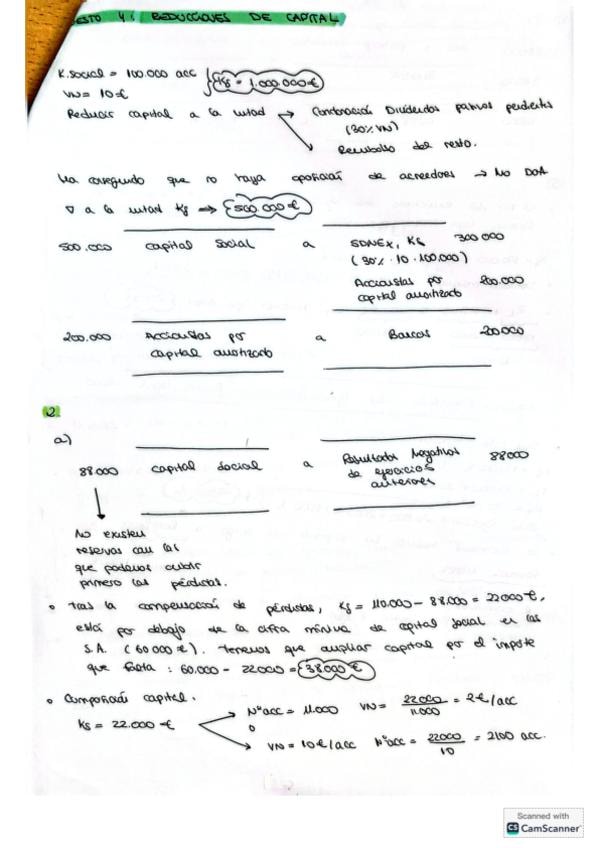 ESTO 4: REDUCCIONES DE CAPITAL
K.social = 100.000 acc
VN = 10€
Ks = 1.000.000€
Reducir capital a la mitad → Condonación Dividendos pasivos pendientes
(30% VN)
→ Reembolso del resto.
Ha conseguido que no haya oposición de acreedores → No DOA
∇ a la mitad Ks → 500.000€
500.000 capital social a SDNEX, KS 300000
(30% · 10 · 100.000)
Accionistas por capital amortizado 200.000
200.000 Accionistas por capital amortizado a Bancos 200000
2.
a)
88.000 capital social a Resultados Negativos de ejercicios anteriores 88000
No existen
reservas con las
que podamos cubrir
primero las pérdidas.
• Tras la compensación de pérdidas, Ks = 110.000 - 88.000 = 22000€,
está por debajo de la cifra mínima de capital social en las
S.A. (60000€). Tenemos que ampliar capital por el importe
que falta: 60.000 - 22000 = 38000€
• Composición capital.
Ks = 22.000€
→ NºACC = 11.000 VN = 22000 / 11.000 = 2€/acc
o
→ VN = 10€/acc Nºacc = 22000 / 10 = 2100 acc.
Scanned with
CS CamScanner